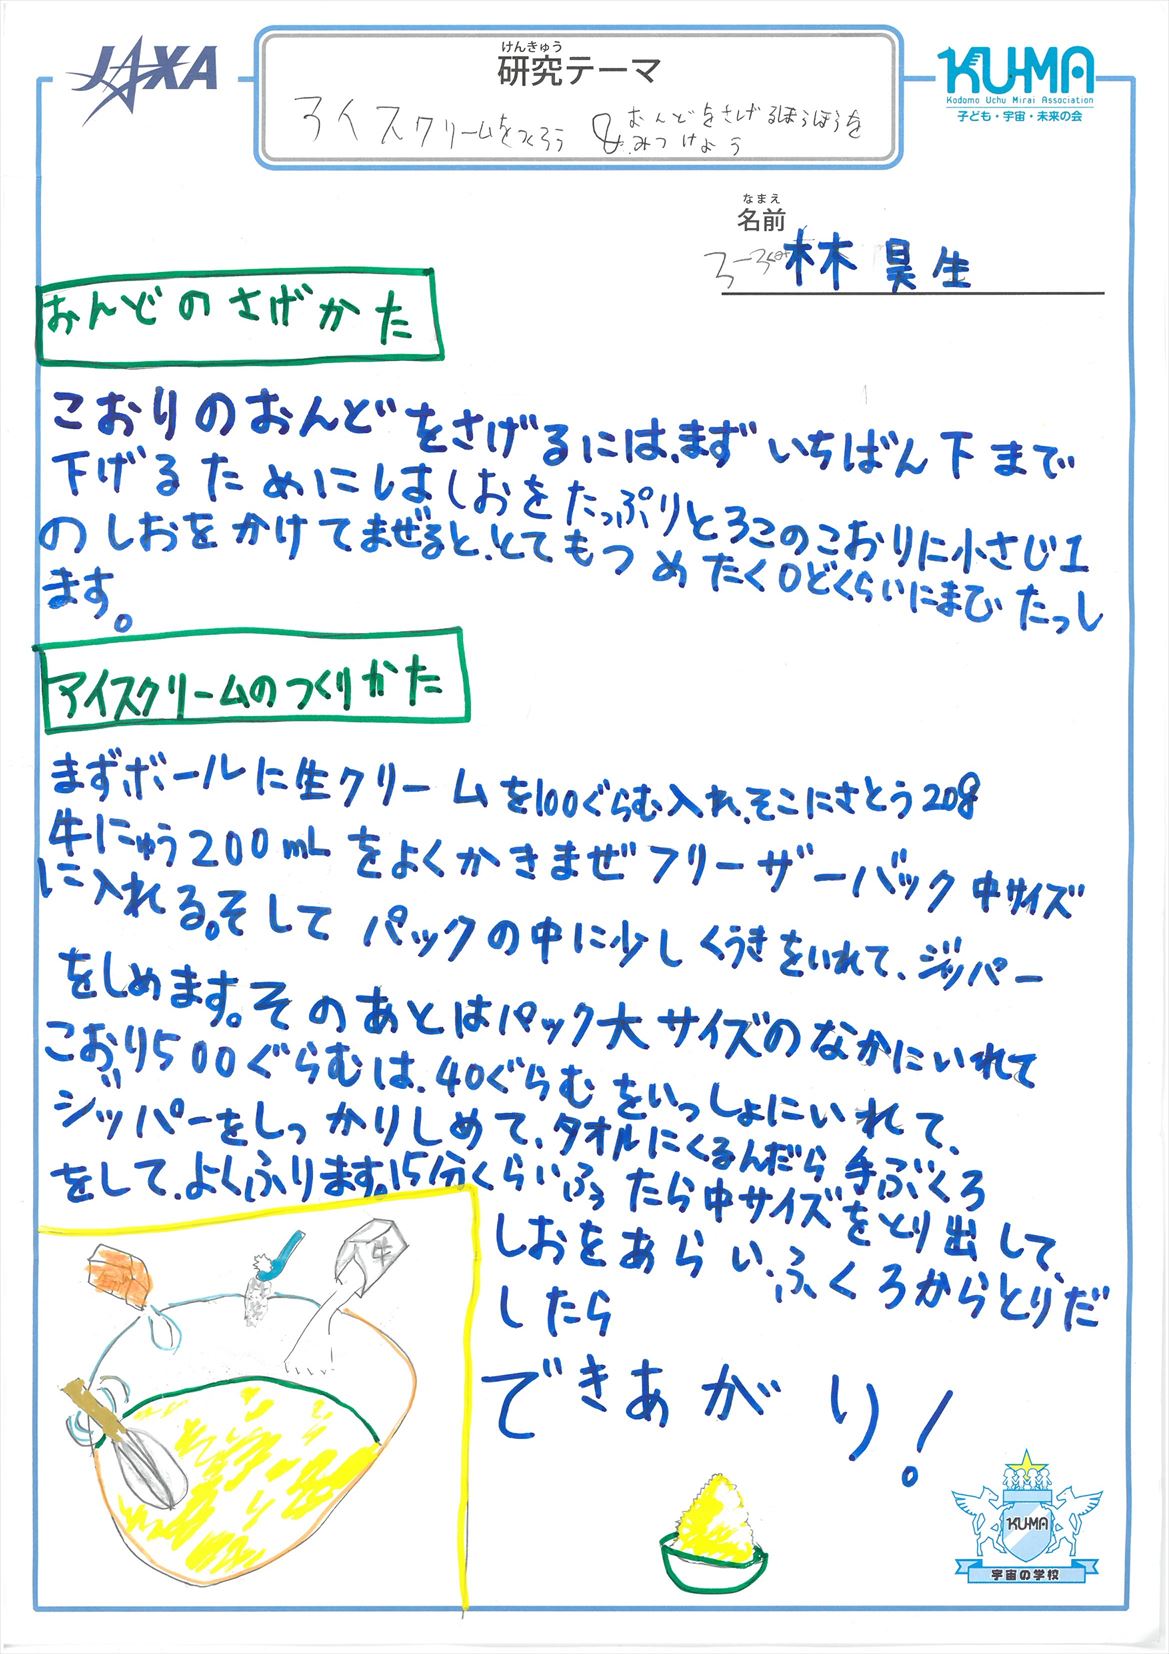 JAXA
けんきゅう
研究テーマ
KU-MA
Kodomo Uchu Mirai Association
子ども・宇宙・未来の会
アイスクリームをつくろう & おんどをさげるほうほうを
みつけよう
なまえ
名前
林 昊生
おんどのさげかた
こおりのおんどをさげるには、まずいちばん下まで
下げるためにしはしおをたっぷりと3このこおりに小さじ1
のしおをかけてまぜると、とてもつめたく0どくらいにまでたっし
ます。
アイスクリームのつくりかた
まずボールに生クリームを100ぐらむ入れ、そこにさとう20g
牛にゅう200mLをよくかきまぜフリーザーバック中サイズ
に入れる。そしてパックの中に少しくうきをいれて、ジッパー
をしめます。そのあとはパック大サイズのなかにいれて
こおり500ぐらむは、40ぐらむをいっしょにいれて、
ジッパーをしっかりしめて、タオルにくるんだら手ぶくろ
をして、よくふります。15分くらいふったら中サイズをとり出して、
しおをあらい、ふくろからとりだ
したら
できあがり!
牛
KUMA
宇宙の学校